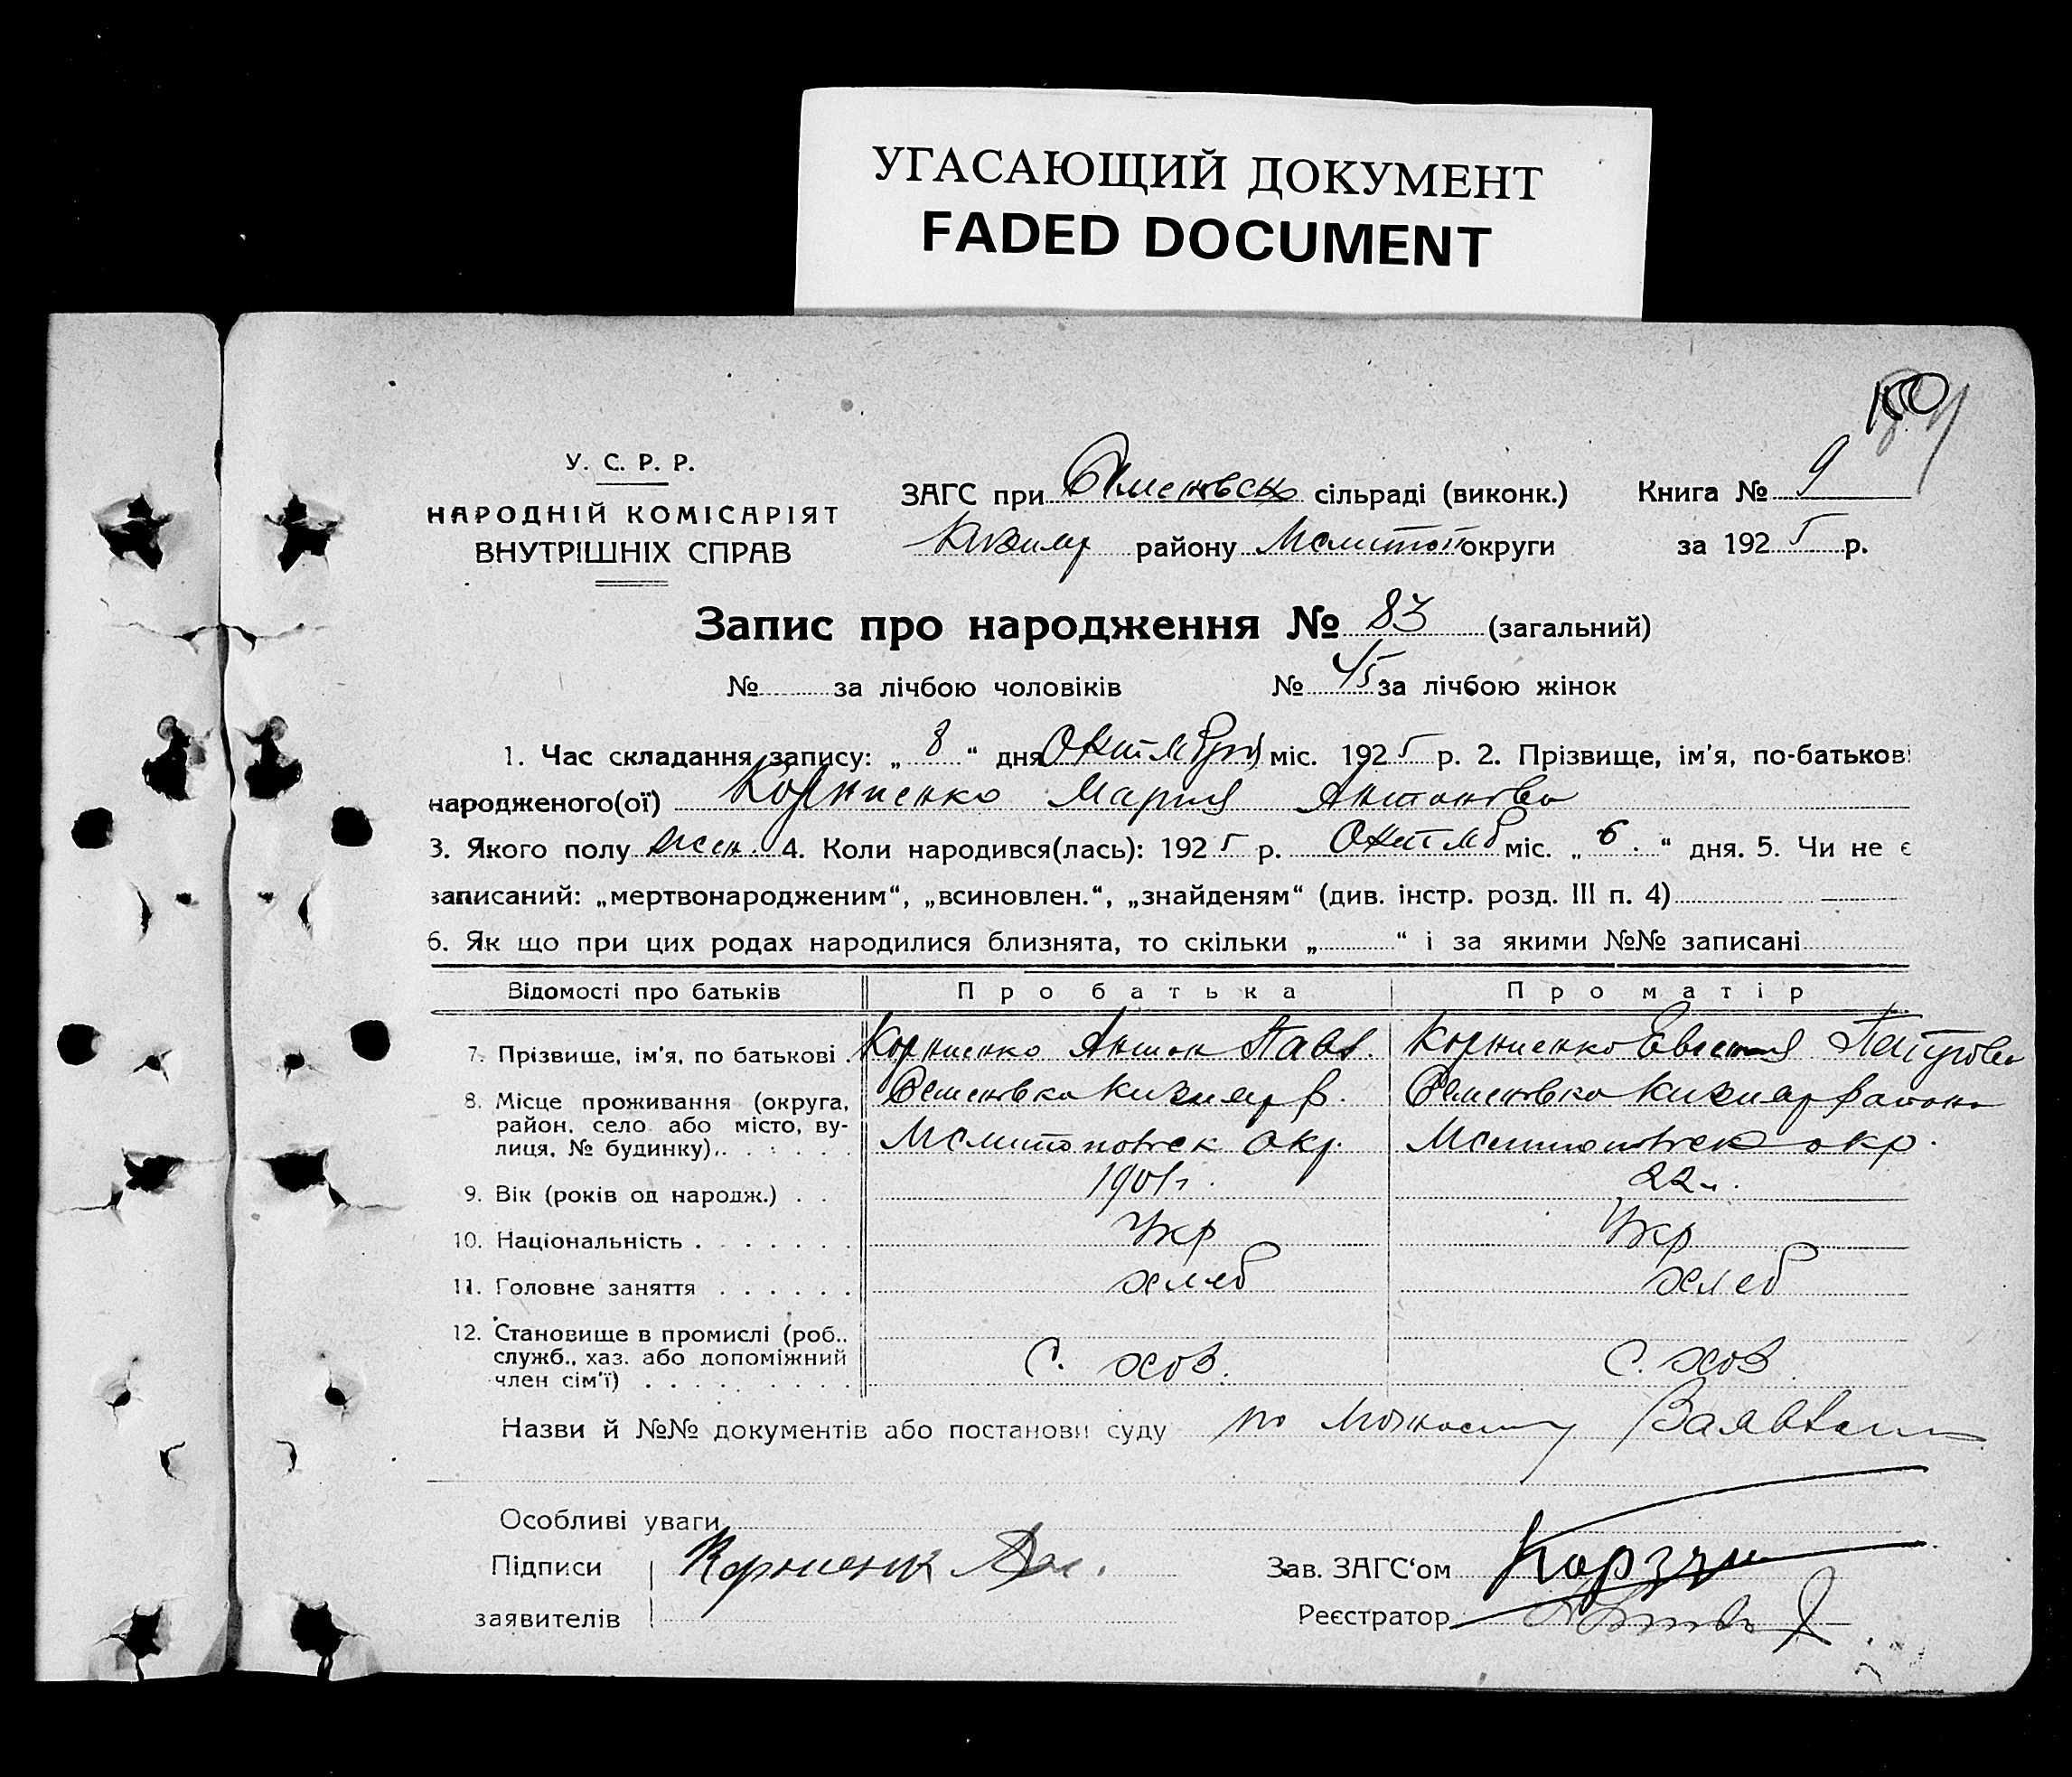 УГАСАЮЩИЙ ДОКУМЕНТ
FADED DOCUMENT
У. С. Р. Р.
НАРОДНІЙ КОМІСАРІЯТ
ВНУТРІШНІХ СПРАВ
ЗАГС при Семеновск сільраді (виконк.) Книга № 9
Кизияр району Мелитоп округи за 1925 р.
Запис про народження № 83 (загальний)
№ за лічбою чоловіків № 45 за лічбою жінок
1. Час складання запису: „ 8 “ дня Октября міс. 1925 р. 2. Прізвище, ім'я, по-батькові
народженого(ої) Корниенко Мария Антоновн
3. Якого полу жен. 4. Коли народився(лась): 1925 р. Октяб міс. „ 6. “ дня. 5. Чи не є
записаний: „мертвонародженим“, „всиновлен.“, „знайденям“ (див. інстр. розд. III п. 4)
6. Як що при цих родах народилися близнята, то скільки „ “ і за якими №№ записані
Відомості про батьків Про батька Про матір
7. Прізвище, ім'я, по батькові Корниенко Антон Павл. Корниенко Евгения
8. Місце проживання (округа, район, село або місто, вулиця, № будинку) Семеновка Кизияр р. Семеновка Кизияр района
Мелитоповск окр. Мелитоповск окр.
9. Вік (років од народж.) 1901 г. 22 г.
10. Національність Укр Укр
11. Головне заняття хлеб хлеб
12. Становище в промислі (роб., служб., хаз. або допоміжний член сім'ї) С. хоз. С. хоз.
Назви й №№ документів або постанови суду по
Особливі уваги
Підписи Корниенк
Зав. ЗАГС‘ом Корзун
заявителів Реєстратор